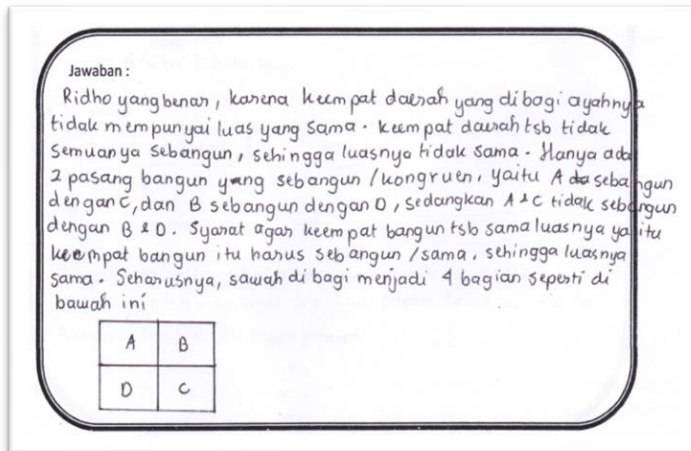 Jawaban :
Ridho yang benar, karena keempat daerah yang dibagi ayahnya
tidak mempunyai luas yang sama. keempat daerah tsb tidak
semuanya sebangun, sehingga luasnya tidak sama. Hanya ada
2 pasang bangun yang sebangun / kongruen, yaitu A sebangun
dengan C, dan B sebangun dengan D, sedangkan A & C tidak sebangun
dengan B & D. Syarat agar keempat bangun tsb sama luasnya yaitu
keempat bangun itu harus sebangun / sama, sehingga luasnya
sama. Seharusnya, sawah dibagi menjadi 4 bagian seperti di
bawah ini
A B
D C